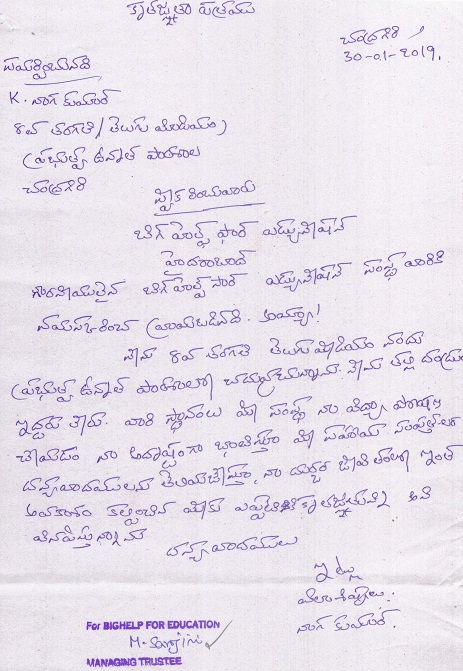 కృతజ్ఞతా పత్రము
చంద్రగిరి,
30-01-2019.
సమర్పించునది
K. నాగ కుమార్
8వ తరగతి (తెలుగు మీడియం)
ప్రభుత్వ ఉన్నత పాఠశాల
చంద్రగిరి
స్వీకరించువారు
బిగ్ హెల్ప్ ఫార్ ఎడ్యుకేషన్
హైదరాబాద్
గౌరవనీయులైన బిగ్ హెల్ప్ ఫార్ ఎడ్యుకేషన్ సంస్థ వారికి
నమస్కరించి వ్రాయబడినది. అయ్యా!
నేను 8వ తరగతి తెలుగు మీడియం నందు
ప్రభుత్వ ఉన్నత పాఠశాలలో చదువుచున్నాను. నేను తల్లి దండ్రులు
ఇద్దరు లేరు. వారి స్థానంలు మీ సంస్థ నా విద్యా పోషణ
చేయడం నా అదృష్టంగా భావిస్తూ మీ సహాయ
ధన్యవాదములను తెలియచేస్తూ, నా జీవితంలో ఇంత
అవకాశం కల్పించిన మీకు కృతజ్ఞుడుని అని
విన్నవిస్తున్నాను
ధన్యవాదములు
ఇట్లు
నాగ కుమార్.
For BIGHELP FOR EDUCATION
M. Sarojini
MANAGING TRUSTEE